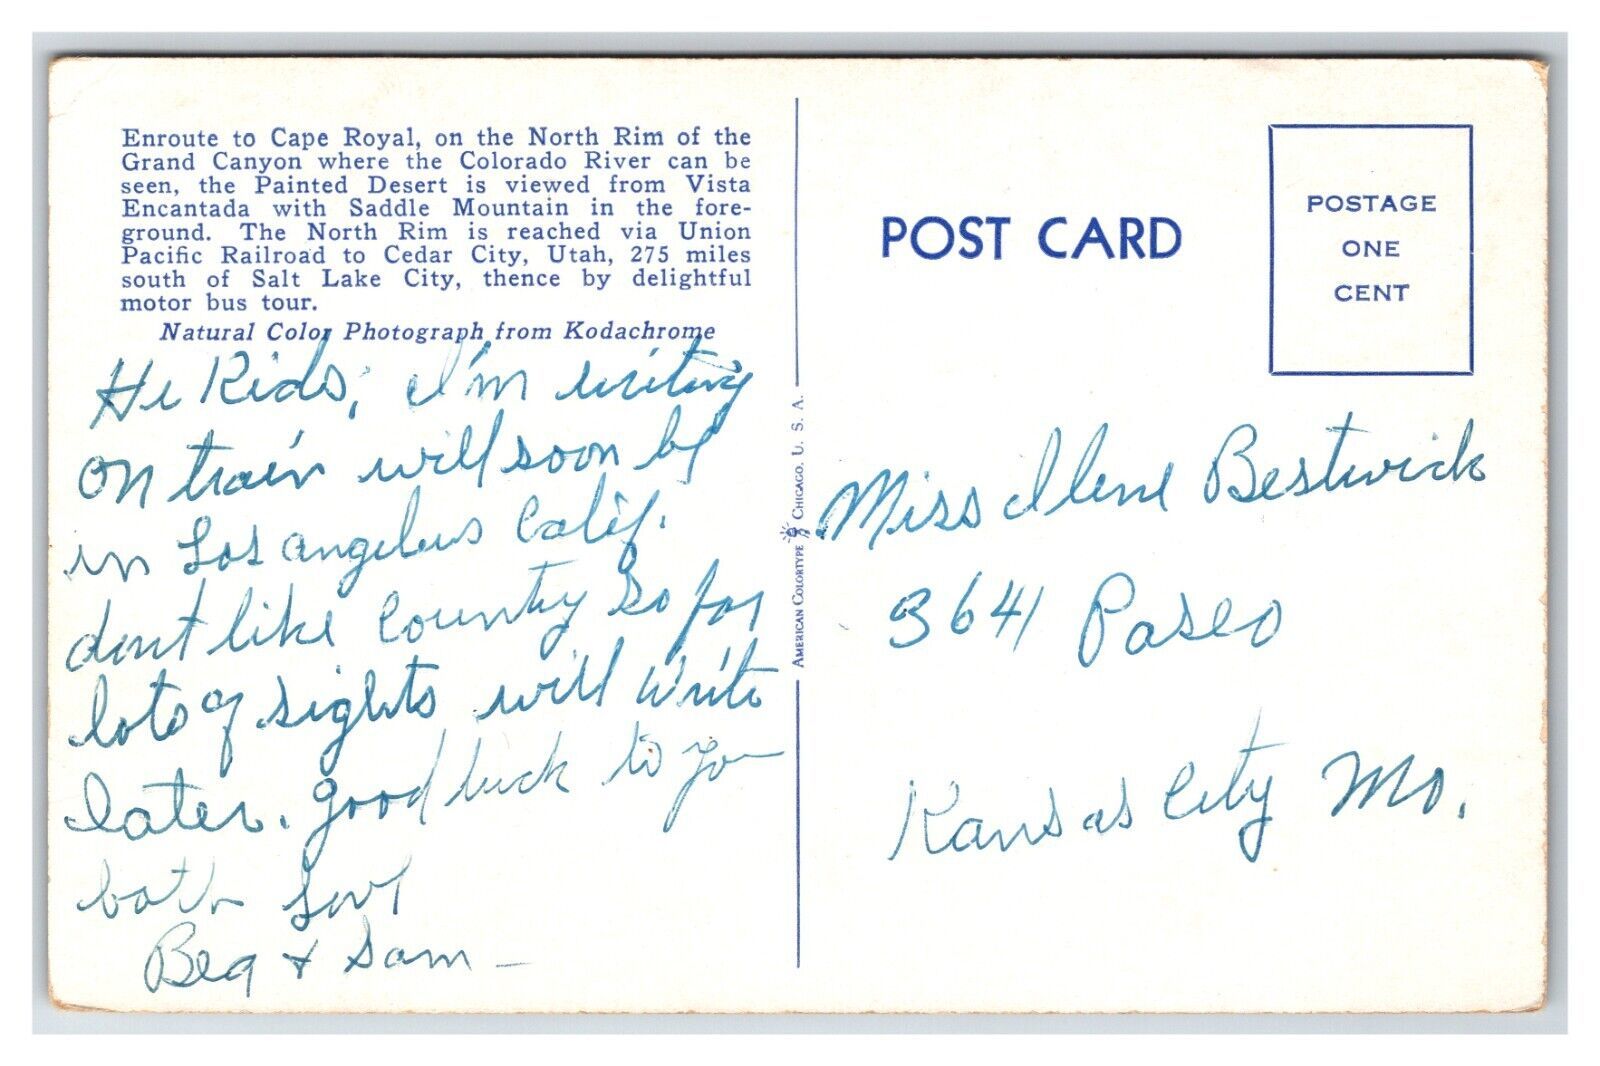 Enroute to Cape Royal, on the North Rim of the
Grand Canyon where the Colorado River can be
seen, the Painted Desert is viewed from Vista
Encantada with Saddle Mountain in the fore-
ground. The North Rim is reached via Union
Pacific Railroad to Cedar City, Utah, 275 miles
south of Salt Lake City, thence by delightful
motor bus tour.
Natural Color Photograph from Kodachrome
Hi Kids; I'm writing
on train will soon be
in Los Angelus Calif.
dont like County so far
lots of sights will write
later. good luck to you
both Love
Bea + Sam -
AMERICAN COLORTYPE CHICAGO, U. S. A.
POST CARD
POSTAGE
ONE
CENT
Miss Ilene Bestwick
3641 Paseo
Kansas City Mo.